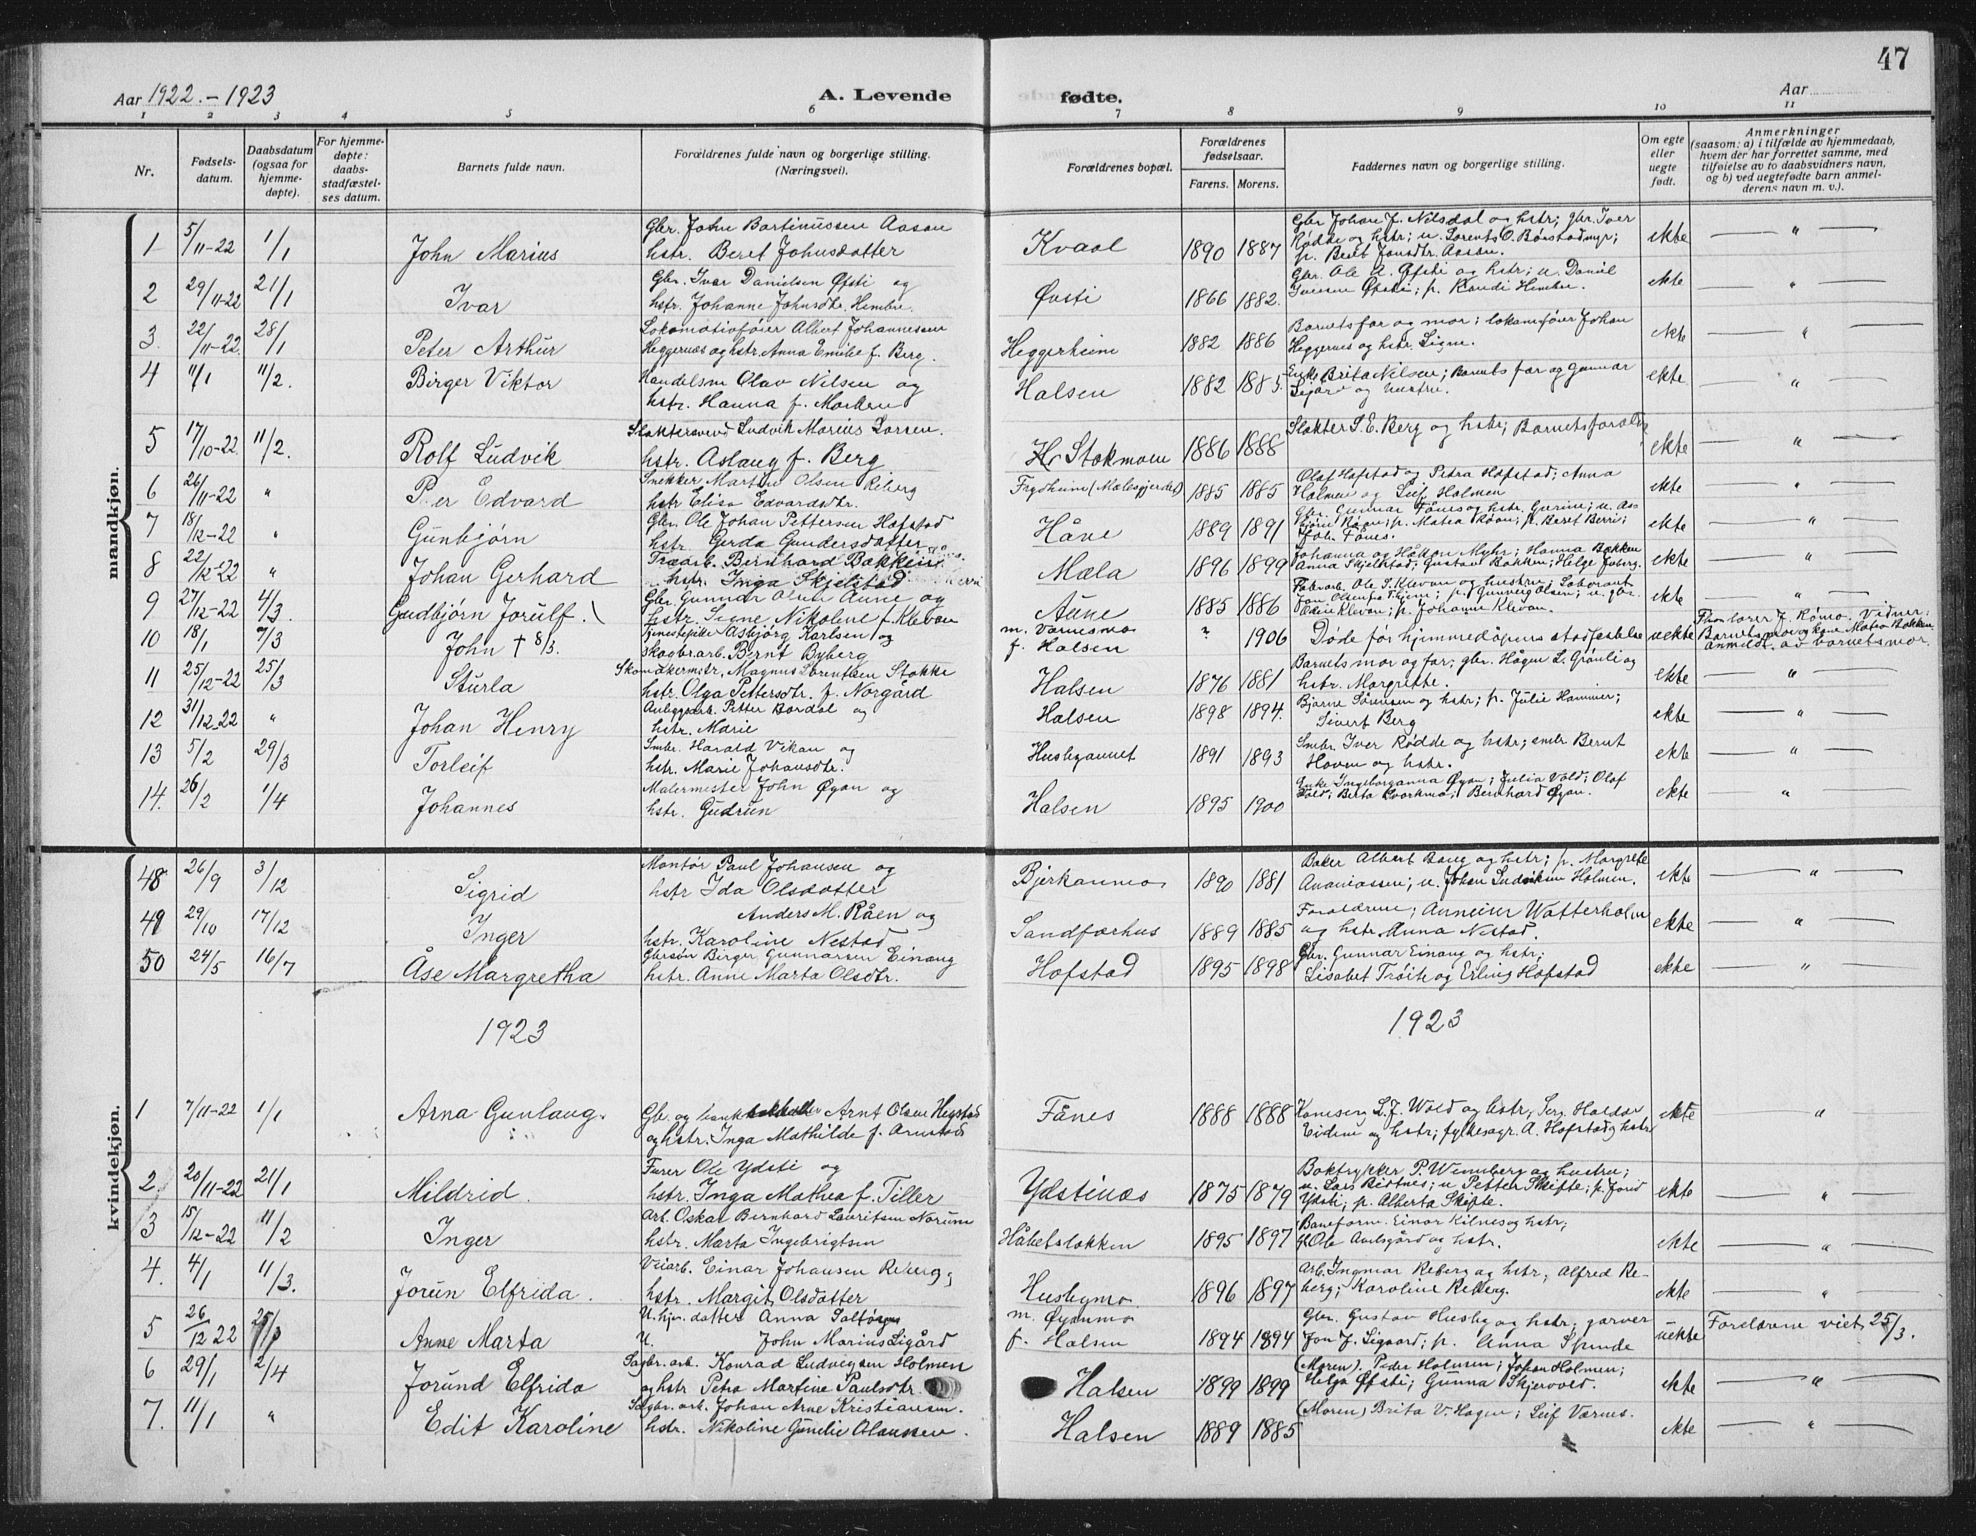 47
Aar 1922. - 1923
A. Levende
fødte.
Aar
1 2 3 4 5 6 7 8 9 10 11
Nr.
Fødsels-
datum.
Daabsdatum
(ogsaa for
hjemme-
døpte).
For hjemme-
døpte:
daabs-
stadfæstel-
ses datum.
Barnets fulde navn.
Forældrenes fulde navn og borgerlige stilling.
(Næringsvei).
Forældrenes bopæl.
Forældrenes
fødselsaar.
Farens. Morens.
Faddernes navn og borgerlige stilling.
Om egte
eller
uegte
født.
Anmerkninger
(saasom: a) i tilfælde av hjemmedaab,
hvem der har forrettet samme, med
tilføielse av to daabsvidners navn,
og b) ved uegtefødte barn anmel-
derens navn m. v.).
mandkjøn.
1 5/11-22 1/1 John Marius Gbr. John Bartinussen Aasan
hstr. Beret Johnsdatter Kvaal 1890 1887 Gbr Johan J. Nilsdal og hstr; gbr. Iver
Rødde og hstr; u. Lorents O. Børstadmyr;
p. Beret Jonsdtr. Aasan. ekte — " —
2 29/11-22 21/1 Ivar Gbr. Ivar Danielsen Øfsti og
hstr. Johanne Johnsdtr. Hembre. Øvsti 1866 1882. Gbr. Ole A. Øfsti og hstr; u. Daniel
Iversen Øfsti; p. Randi Hembre. ekte — " —
3. 22/11-22. 28/1 Peter Arthur Lokomotivfører Albert Johannessen
Heggernes og hstr. Anna Emilie f. Berg. Heggerheim 1882 1886 Barnets far og mor; lokomfører Johan
Heggernes og hstr. Signe. ekte — " —
4 11/1 11/2. Birger Viktor Handelsm Olav Nilsen og
hstr. Hanna f. Marken Halsen 1882 1885. Enke Brita Nilsen; Barnets far og Gunnar
og hustru. ekte — " —
5 17/10-22. 11/2. Rolf Ludvik Slaktersvend Ludvik Marius Larsen.
hstr. Aslaug f. Berg Hr Stokmoen 1886 1888 Slakter S. E. Berg og hstr; Barnets forældre ekte — " —
6 26/11-22 " Per Edvard Snekker Martin Olsen Reberg
hstr Elisa Edvardsdtr. Frydheim (Mælesgjerdet) 1885 1885 Olaf Hofstad og Petra Hofstad; Anna
Holmen og Leif Holmen ekte — " —
7 18/12-22 " Gunbjørn Gbr. Ole Johan Pettersen Hofstad
hstr. Gerda Gundersdatter Håne 1889 1891 Gbr. Gunnar Fånes og hstr. Gurine; u. Aas
bjørn Røen; p. Matea Røen; p. Beret Berri;
Joh. Fånes. ekte — " —
8 22/12-22 " Johan Gerhard Træarb. Bernhard Bakken
hstr. Inga Skjelstad Mæla 1896 1899 Johanna og Håkon Myhr; Hanna Bækken
Anna Skjelstad; Gustav Bakken; Helge Foberg. ekte — " —
9 27/12-22 4/3. Gudbjørn Jorulf. Gbr. Gunnar Olsen Aune og
hstr. Signe Nikoline f. Klevan Aune 1885 1886 Fabrarb. Ole S. Klevan og hustru; Laborant
p. Gunveig Olsen; u. gbr.
Klevan; p. Johanne Klevan. ekte — " —
10 18/1 7/3 John † 8/3. Tjenestepike Asbjørg Karlsen og
skogbr.arb. Bernt Byberg m. Varnesmo
f. Halsen ? 1906 Døde før hjemmedåpens stadfestelse uekte J. Rømo. Vidner:
Barnets mor og kone Matea Bakken.
anmeldt. av barnets mor.
11 25/12-22 25/3 Sturla Skomakermstr. Magnus Lorentsen Stokke
hstr. Olga Pettersdtr. f. Norgård Halsen 1876 1881 Barnets mor og far; gbr. Hågen L. Grønli og
hstr. Margrethe. ekte — " —
12 31/12-22 " Johan Henry Anleggsarb. Petter Bordal og
hstr. Marie Halsen 1898 1894. Bjarne Sørensen og hstr; p. Julie Hammer;
Sivert Berg ekte — " —
13 5/2 29/3 Torleif Smbr. Harald Vikan og
hstr. Marie Johansdtr. Husbyaunet 1891 1893 Smbr. Iver Rødde og hstr; smbr Bernt
Hoven og hstr. ekte — " —
14. 26/2 1/4 Johannes Malermester John Øyan og
hstr. Gudrun Halsen 1895 1900 Enke Ingeborganna Øyan; Julia Vold; Olaf
Vold; Berta Kvorkmo; Bernhard Øyan. ekte — " —
kvindekjøn.
48 26/9 3/12 Sigrid Montør Paul Johansen og
hstr Ida Olsdatter Bjerkanmo 1890 1881 Baker Albert Bang og hstr; p. Margrete
Ananiassen; u. Johan Ludviksen Holmen. ekte — " —
49 29/10 17/12 Inger Anders M. Råen og
hstr. Karoline Nestad Sandfærhus 1889 1885 Foreldrene; Watterholm
og hstr Anna Nestad. ekte — " —
50 24/5 16/7 Åse Margretha Gbrsøn Birger Gunnarsen Einang
hstr. Anne Marta Olsdtr. Hofstad 1895 1898 Gbr. Gunnar Einang og hstr;
Lisabet Trøite og Erling Hofstad ekte — " —
1923 1923
1 7/11-22 1/1 Arna Gunlaug. Gbr. og bankbokholder Arnt Olsen Hegstad
og hstr. Inga Mathilde f. Arnstad Fånes 1888 1888 L. J. Wold og hstr, Serg. Haldor
Eidem og hstr; fylkesagr. A. Hofstad og hstr ekte "
2 20/11-22 21/1 Mildrid. Furer Ole Ydsti og
hstr. Inga Mathea f. Tiller Ydstines 1875 1879 Boktrykker P. Wennberg og hustru;
u. Lars Reitnes; u Petter Skifte; p. Jond
Ydsti; p. Alberta Skifte. ekte — " —
3 15/12-22 11/2 Inger Arb. Oskar Bernhard Lauritsen Norum
hstr. Marta Ingebrigtsen Håbetslokken 1895 1897 Baneform. Einar Kilnes og hstr,
Ole Aulsgård og hstr. ekte — " —
4. 4/1 11/3. Jorun Elfrida. Veiarb. Einar Johansen Reberg;
hstr. Margit Olsdatter Husbymo 1896 1897 Arb. Ingmar Reberg og hstr, Alfred Re-
berg; Karoline Reberg. ekte — " —
5 26/12 22 25/3 Anne Marta U. hjv. datter Anna
U. John Marius Ligård m. Øyanmo
f. Halsen 1894 1894 Gbr. Gustav Husby og hstr; garver
Jon J. Ligaard; p. Anna Spinde uekte Foreldrene viet 25/3.
6 29/1 2/4 Jorund Elfrida Sagbr. arb. Konrad Ludvigsen Holmen
og hstr Petra Martine Paulsdtr. Halsen 1899 1899 (Moren). Peder Holmen; Johan Holmen;
Helga Øfsti; Gunna Skjervold. ekte — " —
7. 11/1 " Edit Karoline Sagbr. ark. Johan Arne Kristiansen.
hstr. Nikoline Gunelie Olaussen. Halsen 1889 1885 (Moren) Brita V. Hagen; Leif Værnes. ekte — " —